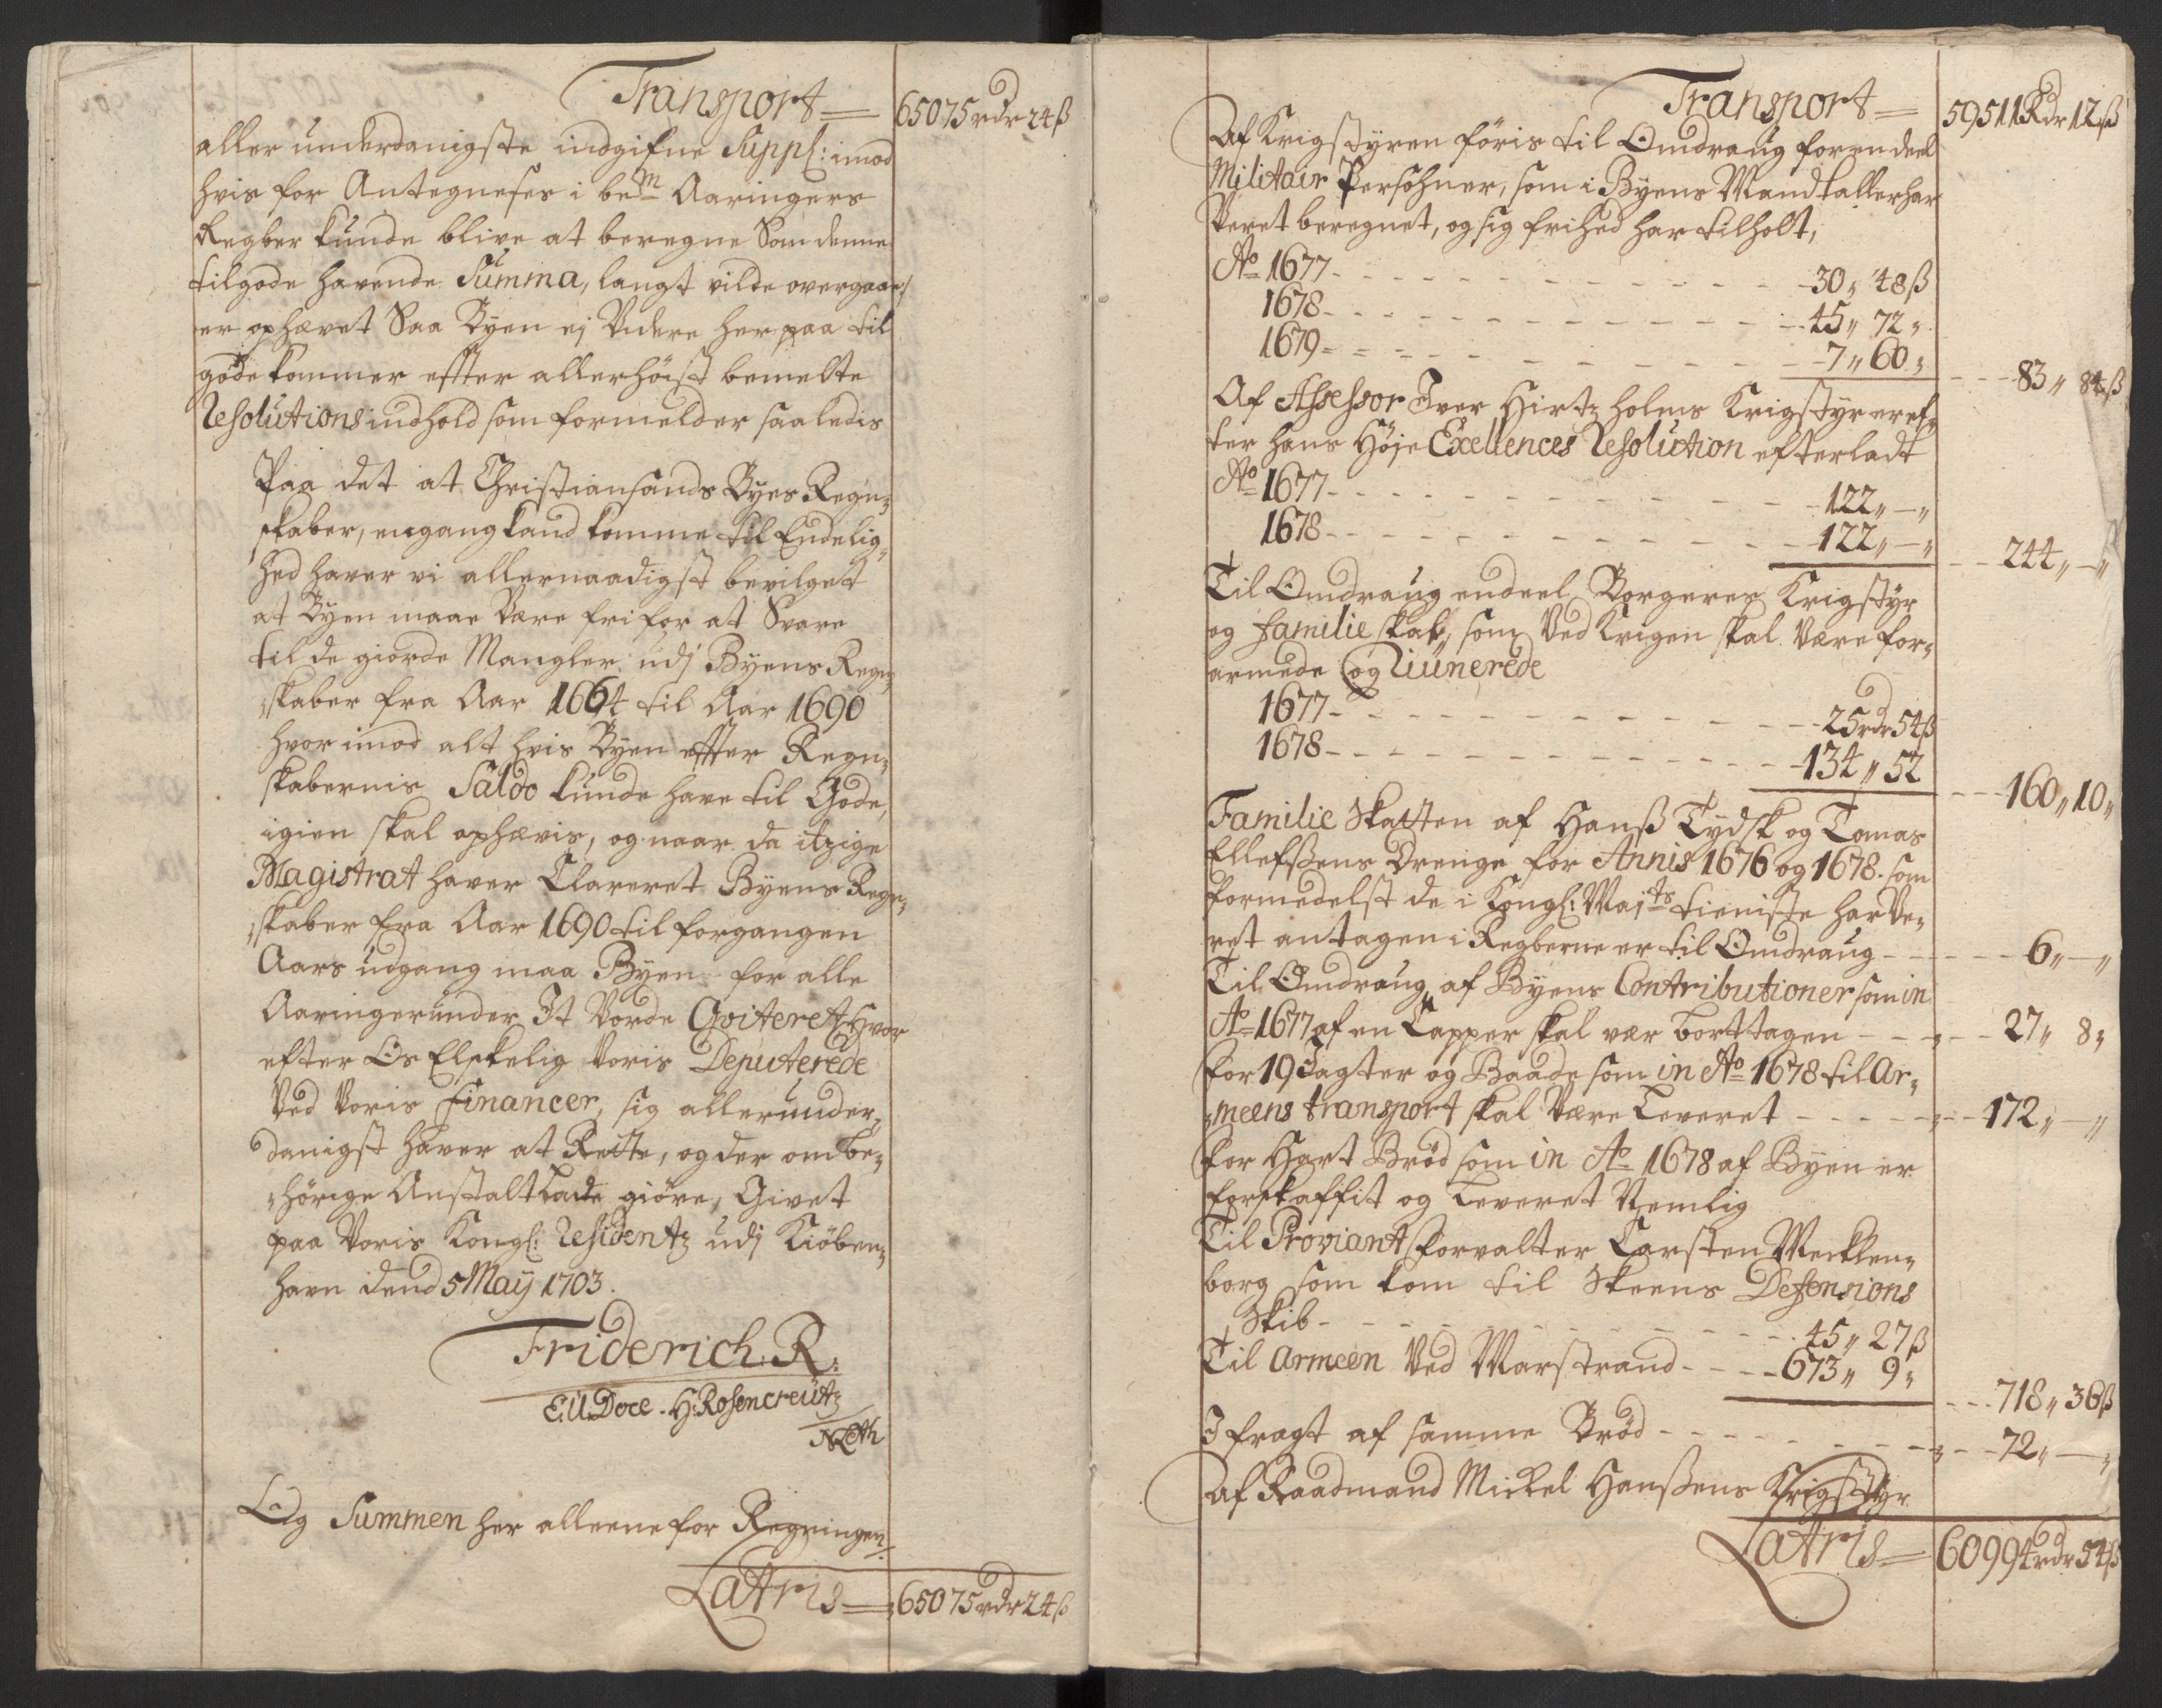 Transport = 65075 rdr 24 ß
aller underdanigste indgifne Suppl: imod
hvis for Antegneses i bem Aaringers
Regber kunde blive at beregne Som denne
tilgode havende Summa, langt vilde overgaae/
er ophævet Saa Byen ej Videre her paa til
gode kommer effter allerhöist bemelte
Resolutions indhold som formelder saaledis
Paa det at Christiansands Byes Regn„
skaber, engang kand komme til Endelig„
hed haver vi allernaadigst bevilget
at Byen maae Være fri for at Svare
til de giorde Mangler udj Byens Regn„
skaber fra Aar 1664 til Aar 1690
hvor imod alt hvis Byen effter Regn„
skabernis Saldo kunde have til Gode,
igien skal ophævis, og naar da itzige
Magistrat haver Clareret Byens Regn„
skaber fra Aar 1690 til forgangen
Aars udgang maa Byen for alle
Aaringer under It Vorde Qviteret, Hvor
efter Os Elskelig Voris Deputerede
Ved Voris Financer, sig allerunder„
danigst haver at Rette, og der om be„
hörige Anstalt lade giöre, Givet
paa Voris Kongl: Residentz udj Kiöben„
havn dend 5 Maÿ 1703.
Friderich: R:
E: U: Doce - H: Rosencreütz
NLeth
Og Summen her alleene for Regningen/:
Latris = 65075 rdr 24 ß
Transport = 59511 Rdr 12 ß
Af Krigstyren föris til Omdraug for en deel
Militair Persohner, som i Byens Mandtaller har
Veret beregnet, og sig frihed har tilholt,
Ao 1677 - - - 30„ 48 ß
1678 - - - 45„ 72„
1679 - - - 7„ 60„ - - - 83„ 84 ß
Af Assessor Iver Hirtzholms Krigstyr er ef„
ter hans Höje Exellences Resolution efterladt
Ao 1677 - - - 122„ —„
1678 - - - 122„ —„ - - - 244„ —„
Til Omdraug endeel Borgeres Krigstyr
og familie skat, som Ved Krigen skal Være for„
armede og Riünerede
1677 - - - 25 rdr 54 ß
1678 - - - 134„ 52 - - - 160„ 10„
Familie Skatten af Hanß Tydsk og Tomas
Ellefßens Drenge for Annis 1676 og 1678. som
formedelst de i Kongl: Majts tieniste har Ve„
ret antagen i Regberne er til Omdraug - - - 6„ —„
Til Omdraug af Byens Contributioner som in
Ao 1677 af en Capper skal vær borttagen - - - 27„ 8„
For 19 Jagter og Baade som in Ao 1678 til Ar„
meens transport skal Være Leveret - - - 172„ —„
For Hart Bröd som in Ao 1678 af Byen er
forskaffit og Leveret Nemlig
Til Proviant forvalter Carsten Mecklen„
borg som kom til Skeens Defensions
Skib - - - 45„ 27 ß
Til Armeen Ved Marstrand - - - 673„ 9„ - - - 718„ 36 ß
I fragt af samme Bröd - - - 72„ —„
Af Raadmand Mickel Hanßens Krigstyr
Latris = 60994 rdr 54 ß